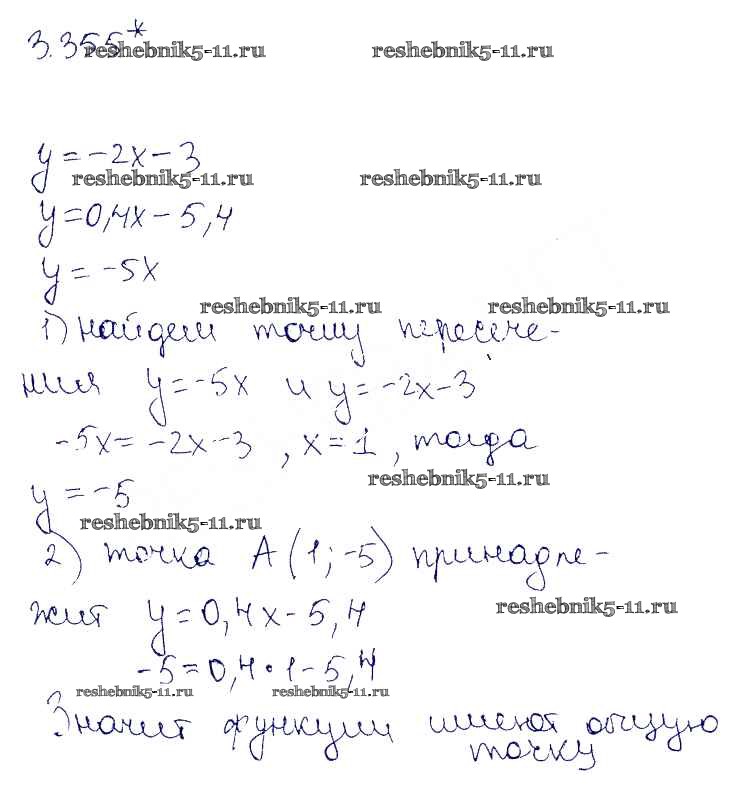 3.355*
reshebnik5-11.ru reshebnik5-11.ru
y = -2x - 3
reshebnik5-11.ru reshebnik5-11.ru
y = 0,4x - 5,4
y = -5x
reshebnik5-11.ru reshebnik5-11.ru
1) найдем точку пересече-
ния y = -5x и y = -2x - 3
-5x = -2x - 3 , x = 1 , тогда
reshebnik5-11.ru
y = -5
reshebnik5-11.ru
2) точка A (1; -5) принадле-
жит y = 0,4x - 5,4
reshebnik5-11.ru
-5 = 0,4 • 1 - 5,4
reshebnik5-11.ru reshebnik5-11.ru
Значит функции имеют общую
точку